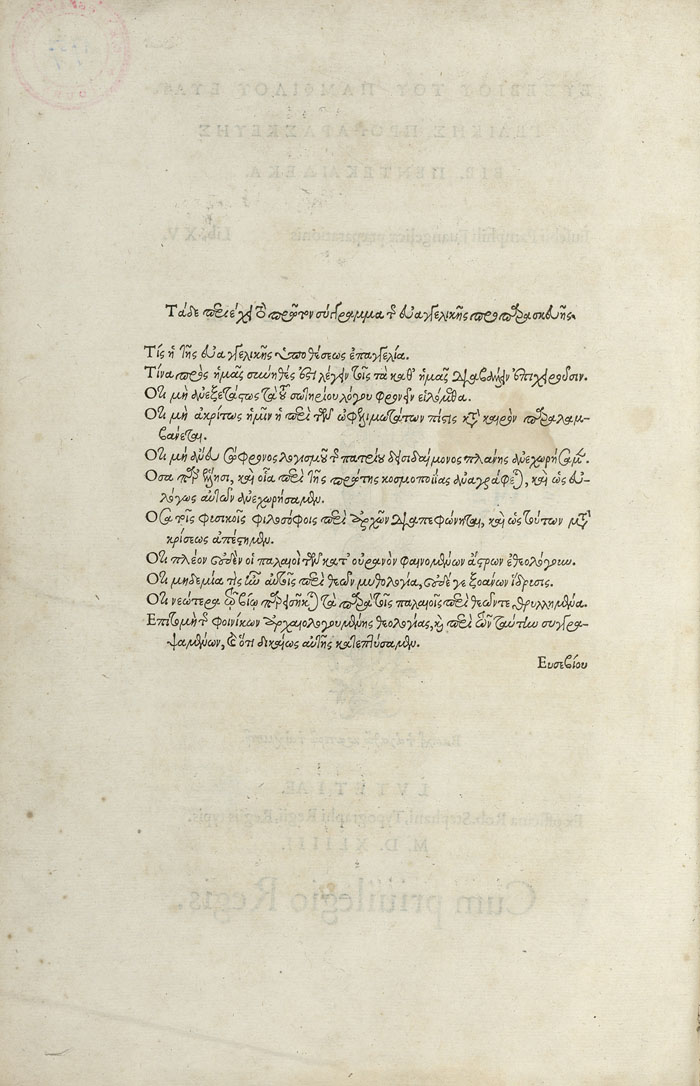 Τάδε περιέχει τὸ πρῶτον σύγγραμμα τῆς εὐαγγελικῆς προπαρασκευῆς.
Τίς ἡ τῆς εὐαγγελικῆς ὑποθέσεως ἐπαγγελία.
Τίνα πρὸς ἡμᾶς σύνηθές ἐστι λέγειν τοῖς τὰ καθ' ἡμᾶς διαβάλλειν ἐπιχειροῦσιν.
Ὅτι μὴ ἀνεξετάστως τὰ τοῦ σωτηρίου λόγου φρονεῖν εἱλόμεθα.
Ὅτι μὴ ἀκρίτως ἡμῖν ἡ περὶ τῶν ὠφελιμωτάτων πίστις κατὰ καιρὸν παραλαμ-
βάνεται.
Ὅτι μὴ ἄνευ σώφρονος λογισμοῦ τῆς πατρίου δεισιδαίμονος πλάνης ἀνεχωρήσαμεν.
Ὅσα παρατίθησι, καὶ οἷα περὶ τῆς πρώτης κοσμοποιίας ἀναγράφεται, καὶ ὡς εὐ-
λόγως αὐτῶν ἀνεχωρήσαμεν.
Ὅσα τοῖς φυσικοῖς φιλοσόφοις περὶ ἀρχῶν διαπεφώνηται, καὶ ὡς τούτων μετὰ
κρίσεως ἀπέστημεν.
Ὅτι πλέον οὐδὲν οἱ παλαιοὶ τῶν κατ' οὐρανὸν φαινομένων ἄστρων ἐθεολόγουν.
Ὅτι μηδεμία τις ἦν αὐτοῖς περὶ θεῶν μυθολογία, οὐδέ γε ξοάνων ἵδρυσις.
Ὅτι νεώτερα τῷ βίῳ παρεισῆκται τὰ παρὰ τοῖς παλαιοῖς περὶ θεῶν τεθρυλλημένα.
Ἐπιτομὴ τῆς φοινίκων ἀρχαιολογουμένης θεολογίας, καὶ περὶ τῶν ταύτην συγγρα-
ψαμένων, καὶ ὅτι δικαίως αὐτῆς κατεπτύσαμεν.
Εὐσεβίου